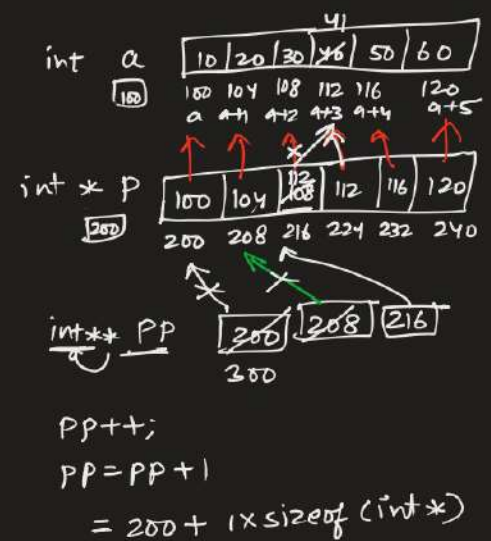 41
int a 10 20 30 40 50 60
100 100 104 108 112 116 120
a a+1 a+2 a+3 a+4 a+5
112
int * P 100 104 108 112 116 120
200 200 208 216 224 232 240
int** PP 200 208 216
300
PP++;
PP = PP + 1
= 200 + 1 x sizeof (int *)